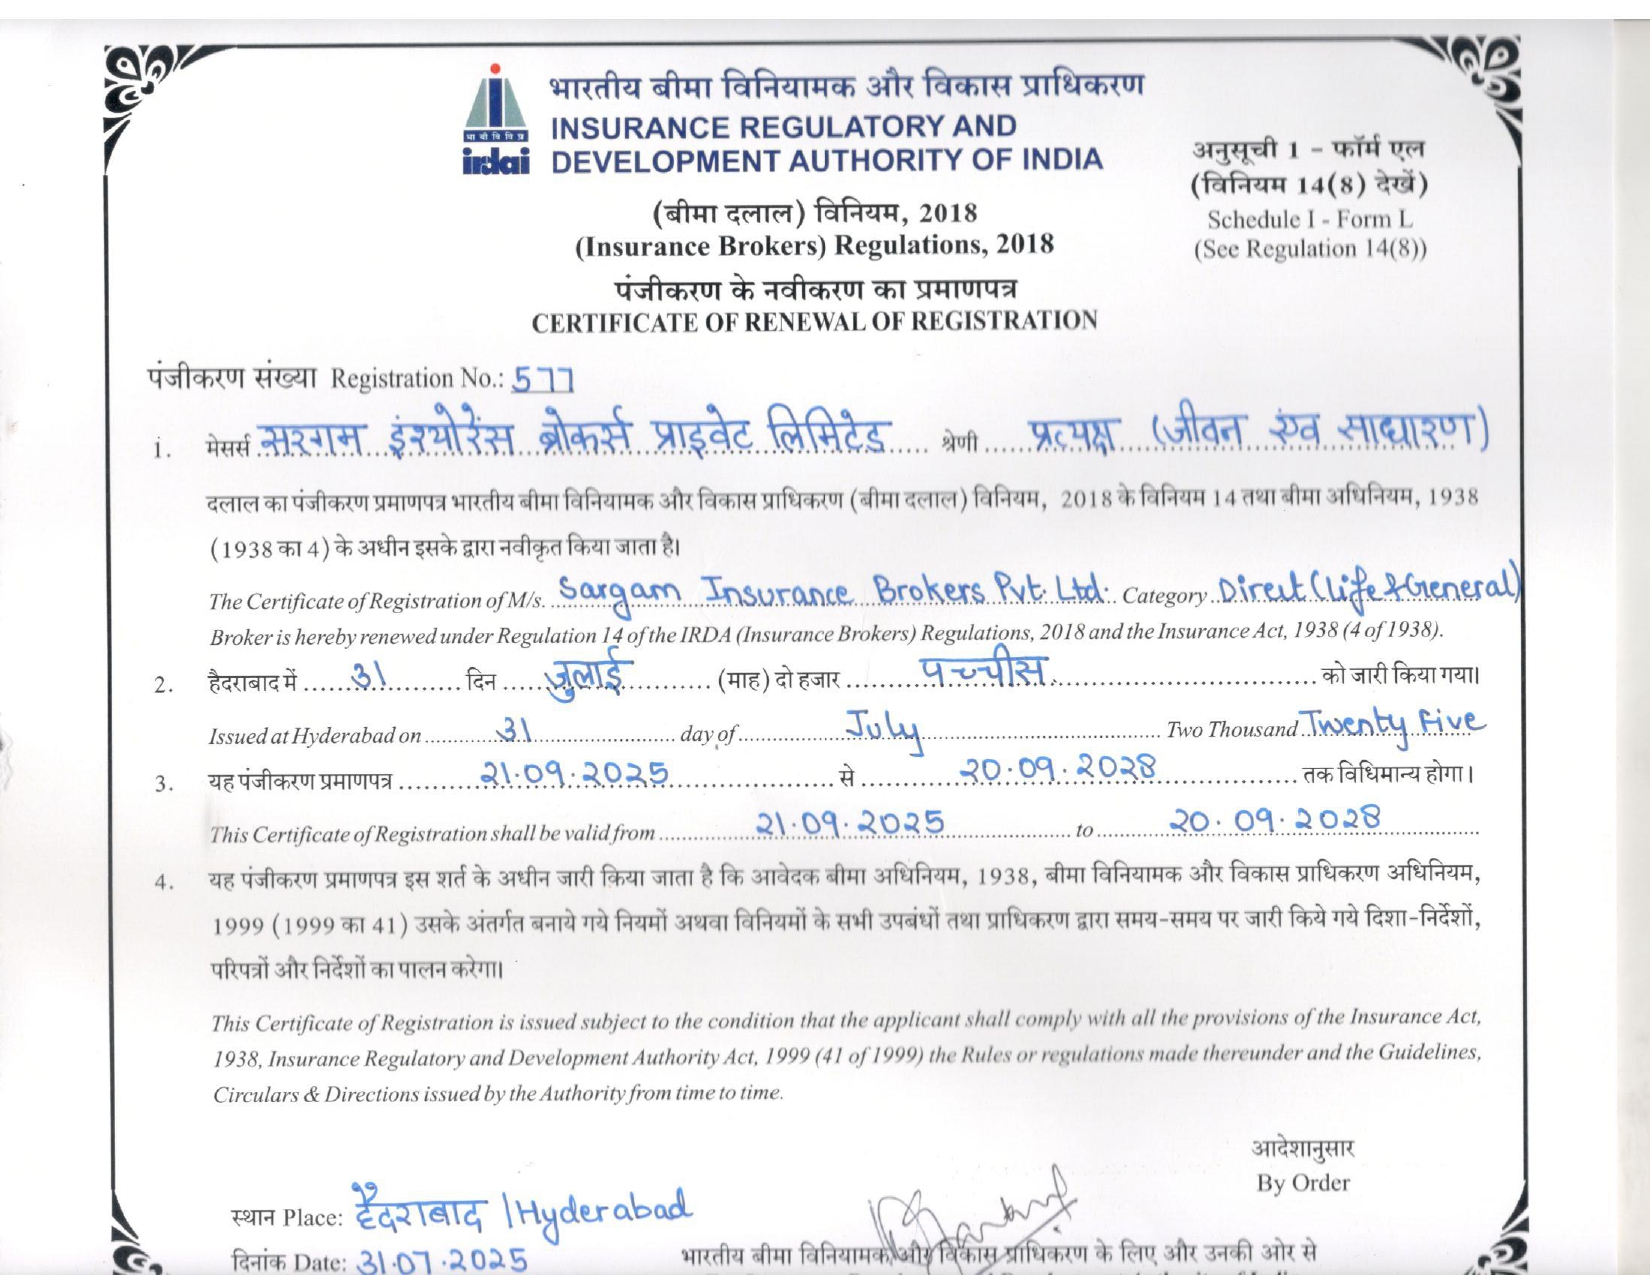 भारतीय बीमा विनियामक और विकास प्राधिकरण
INSURANCE REGULATORY AND
DEVELOPMENT AUTHORITY OF INDIA
भा बी वि वि प्र
irdai
अनुसूची 1 - फॉर्म एल
(विनियम 14(8) देखें)
Schedule I - Form L
(See Regulation 14(8))
(बीमा दलाल) विनियम, 2018
(Insurance Brokers) Regulations, 2018
पंजीकरण के नवीकरण का प्रमाणपत्र
CERTIFICATE OF RENEWAL OF REGISTRATION
पंजीकरण संख्या Registration No.: 577
1. मेसर्स सरगम इंश्योरेंस ब्रोकर्स प्राइवेट लिमिटेड श्रेणी प्रत्यक्ष (जीवन एंव साधारण)
दलाल का पंजीकरण प्रमाणपत्र भारतीय बीमा विनियामक और विकास प्राधिकरण (बीमा दलाल) विनियम, 2018 के विनियम 14 तथा बीमा अधिनियम, 1938
(1938 का 4) के अधीन इसके द्वारा नवीकृत किया जाता है।
The Certificate of Registration of M/s. Sargam Insurance Brokers Pvt. Ltd. Category Direct (Life & General)
Broker is hereby renewed under Regulation 14 of the IRDA (Insurance Brokers) Regulations, 2018 and the Insurance Act, 1938 (4 of 1938).
2. हैदराबाद में 31 दिन जुलाई (माह) दो हजार पच्चीस को जारी किया गया।
Issued at Hyderabad on 31 day of July Two Thousand Twenty Five
3. यह पंजीकरण प्रमाणपत्र 21.09.2025 से 20.09.2028 तक विधिमान्य होगा।
This Certificate of Registration shall be valid from 21.09.2025 to 20.09.2028
4. यह पंजीकरण प्रमाणपत्र इस शर्त के अधीन जारी किया जाता है कि आवेदक बीमा अधिनियम, 1938, बीमा विनियामक और विकास प्राधिकरण अधिनियम,
1999 (1999 का 41) उसके अंतर्गत बनाये गये नियमों अथवा विनियमों के सभी उपबंधों तथा प्राधिकरण द्वारा समय-समय पर जारी किये गये दिशा-निर्देशों,
परिपत्रों और निर्देशों का पालन करेगा।
This Certificate of Registration is issued subject to the condition that the applicant shall comply with all the provisions of the Insurance Act,
1938, Insurance Regulatory and Development Authority Act, 1999 (41 of 1999) the Rules or regulations made thereunder and the Guidelines,
Circulars & Directions issued by the Authority from time to time.
आदेशानुसार
By Order
स्थान Place: हैदराबाद / Hyderabad
दिनांक Date: 31.07.2025
भारतीय बीमा विनियामक और विकास प्राधिकरण के लिए और उनकी ओर से